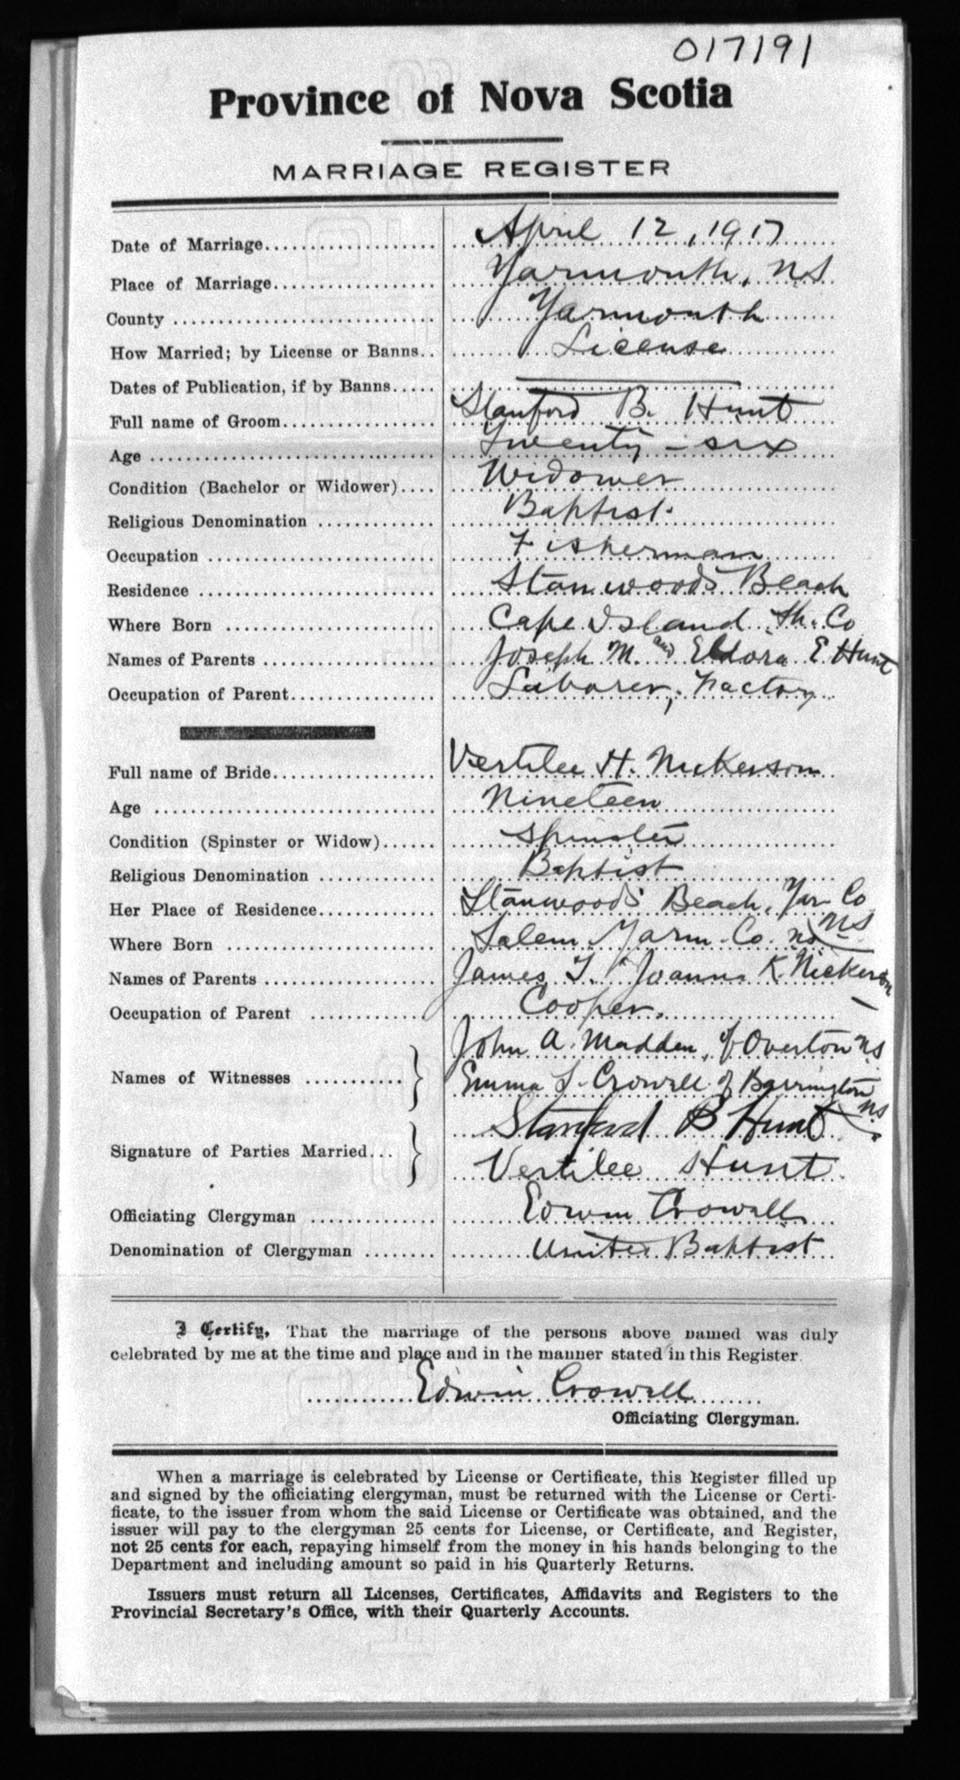 017191
Province of Nova Scotia
MARRIAGE REGISTER
Date of Marriage.................... April 12, 1917
Place of Marriage................... Yarmouth, N.S.
County ............................. Yarmouth
How Married; by License or Banns.. License
Dates of Publication, if by Banns.....
Full name of Groom.................. Stanford B. Hunt
Age ................................ Twenty-six
Condition (Bachelor or Widower).... Widower
Religious Denomination ............. Baptist.
Occupation ......................... Fisherman
Residence .......................... Stanwoods Beach
Where Born ........................ Cape Island Sh. Co
Names of Parents ................... Joseph M. and Eldora E Hunt
Occupation of Parent................ Laborer, Factory
Full name of Bride.................. Vertilee H. Nickerson
Age ................................ Nineteen
Condition (Spinster or Widow)...... Spinster
Religious Denomination ............. Baptist
Her Place of Residence............. Stanwood's Beach, Yar Co N.S.
Where Born ........................ Salem Yarm. Co. NS
Names of Parents ................... James T. Joanna K. Nickerson
Occupation of Parent .............. Cooper.
Names of Witnesses ........... John A. Madden, of Overton N.S
Emma J. Crowell of Barrington N.S.
Signature of Parties Married... Stanford B Hunt
Vertilee Hunt.
Officiating Clergyman .............. Edwin Crowell
Denomination of Clergyman ........ United Baptist
I Certify, That the marriage of the persons above named was duly
celebrated by me at the time and place and in the manner stated in this Register.
Edwin Crowell
Officiating Clergyman.
When a marriage is celebrated by License or Certificate, this Register filled up
and signed by the officiating clergyman, must be returned with the License or Certi-
ficate, to the issuer from whom the said License or Certificate was obtained, and the
issuer will pay to the clergyman 25 cents for License, or Certificate, and Register,
not 25 cents for each, repaying himself from the money in his hands belonging to the
Department and including amount so paid in his Quarterly Returns.
Issuers must return all Licenses, Certificates, Affidavits and Registers to the
Provincial Secretary's Office, with their Quarterly Accounts.